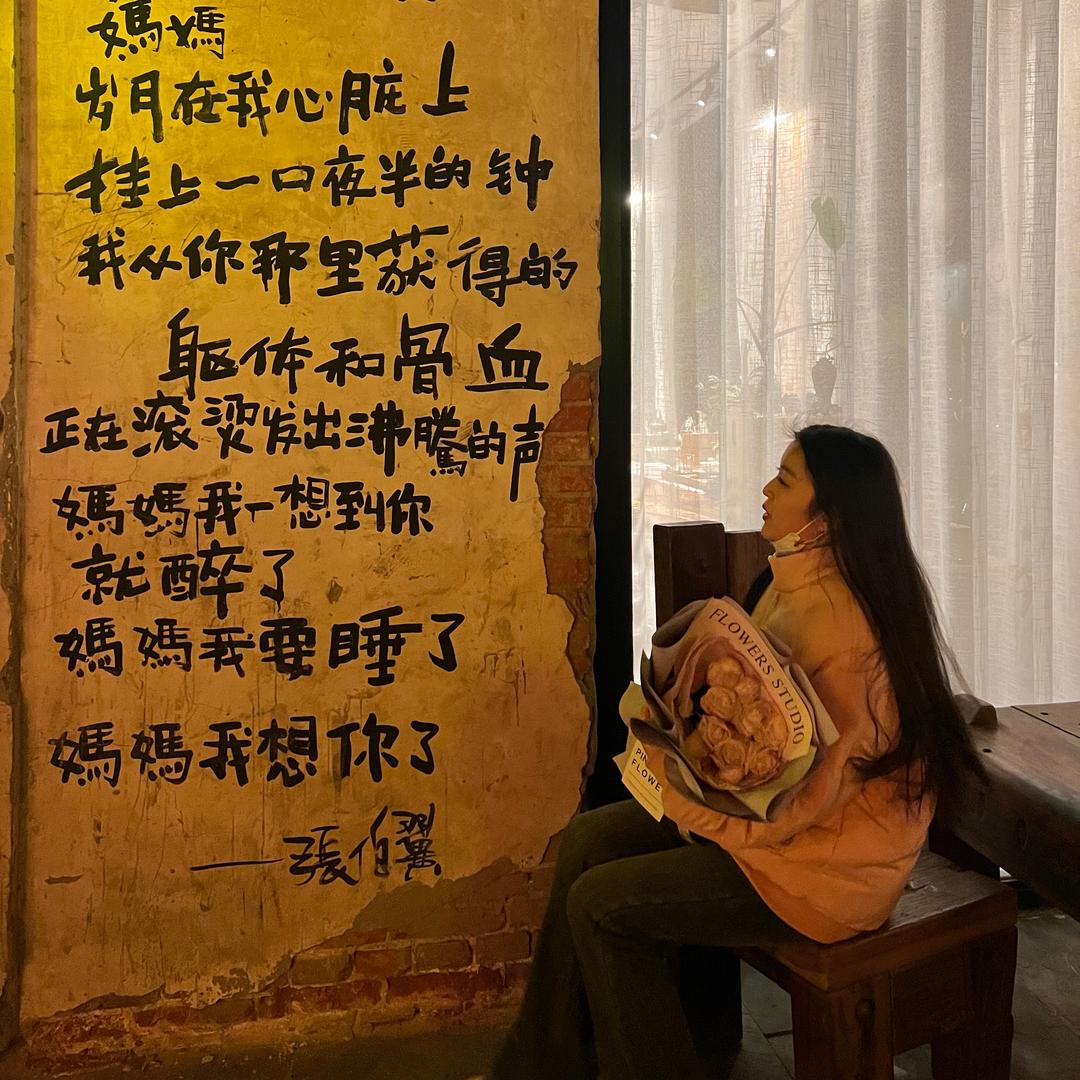 媽媽
岁月在我心脏上
挂上一口夜半的钟
我从你那里获得的
躯体和骨血
正在滚烫发出沸騰的声
媽媽我一想到你
就醉了
媽媽我要睡了
媽媽我想你了
——張伯翼
FLOWERS STUDIO
FLOWE